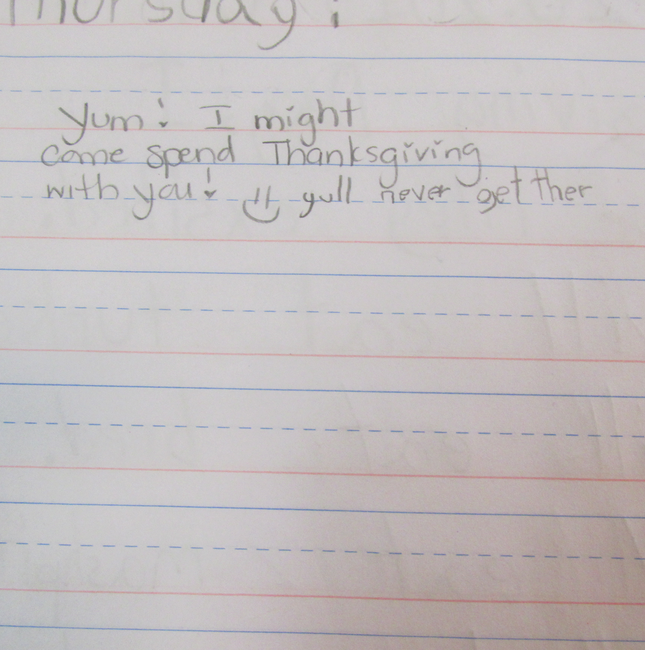 Thursday!
Yum! I might
come spend Thanksgiving
with you! yull never get ther